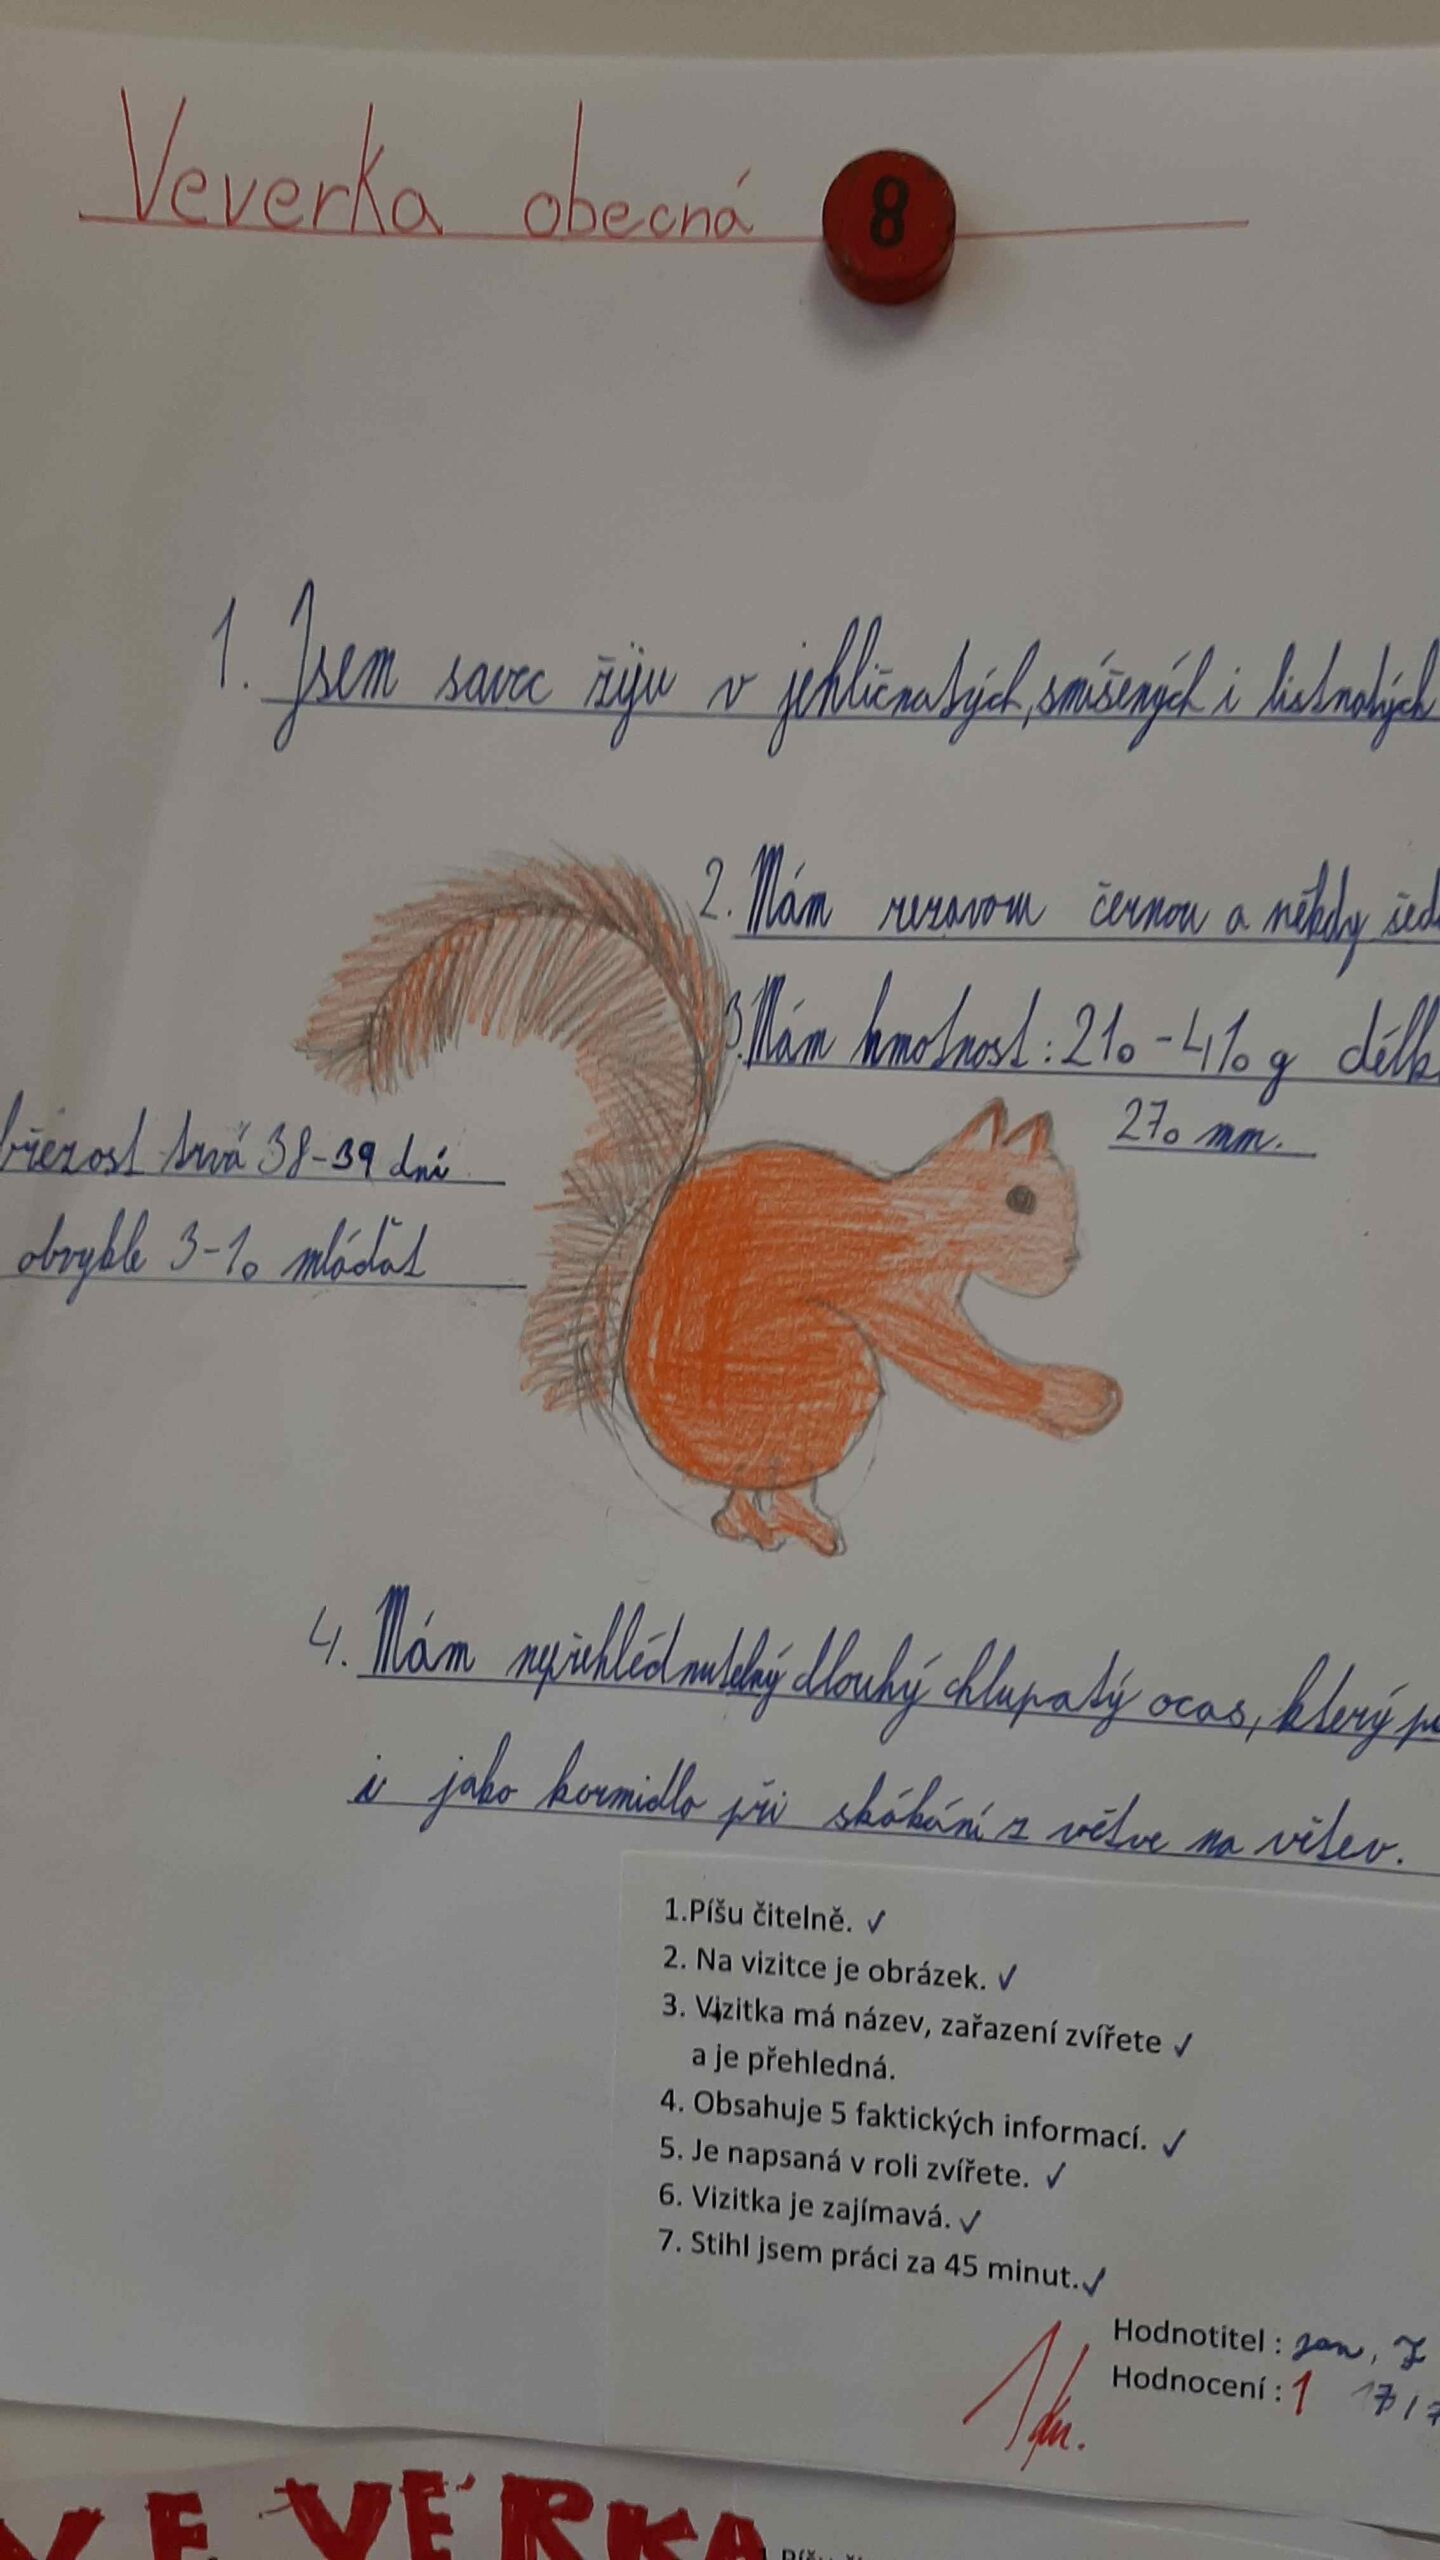 Veverka obecná
8
1. Jsem savec žiju v jehličnatých, smíšených i listnatých
2. Mám rezavou černou a někdy šed
3. Mám hmotnost: 210-410 g délk
270 mm.
březost trvá 38-39 dní
obvykle 3-10 mláďat
4. Mám nepřehlédnutelný dlouhý chlupatý ocas, který p
i jako kormidlo při skákání z větve na větev.
1.Píšu čitelně. ✓
2. Na vizitce je obrázek. ✓
3. Vizitka má název, zařazení zvířete ✓
a je přehledná.
4. Obsahuje 5 faktických informací. ✓
5. Je napsaná v roli zvířete. ✓
6. Vizitka je zajímavá. ✓
7. Stihl jsem práci za 45 minut. ✓
Hodnotitel : Jan, J
Hodnocení : 1
1
VEVERKA